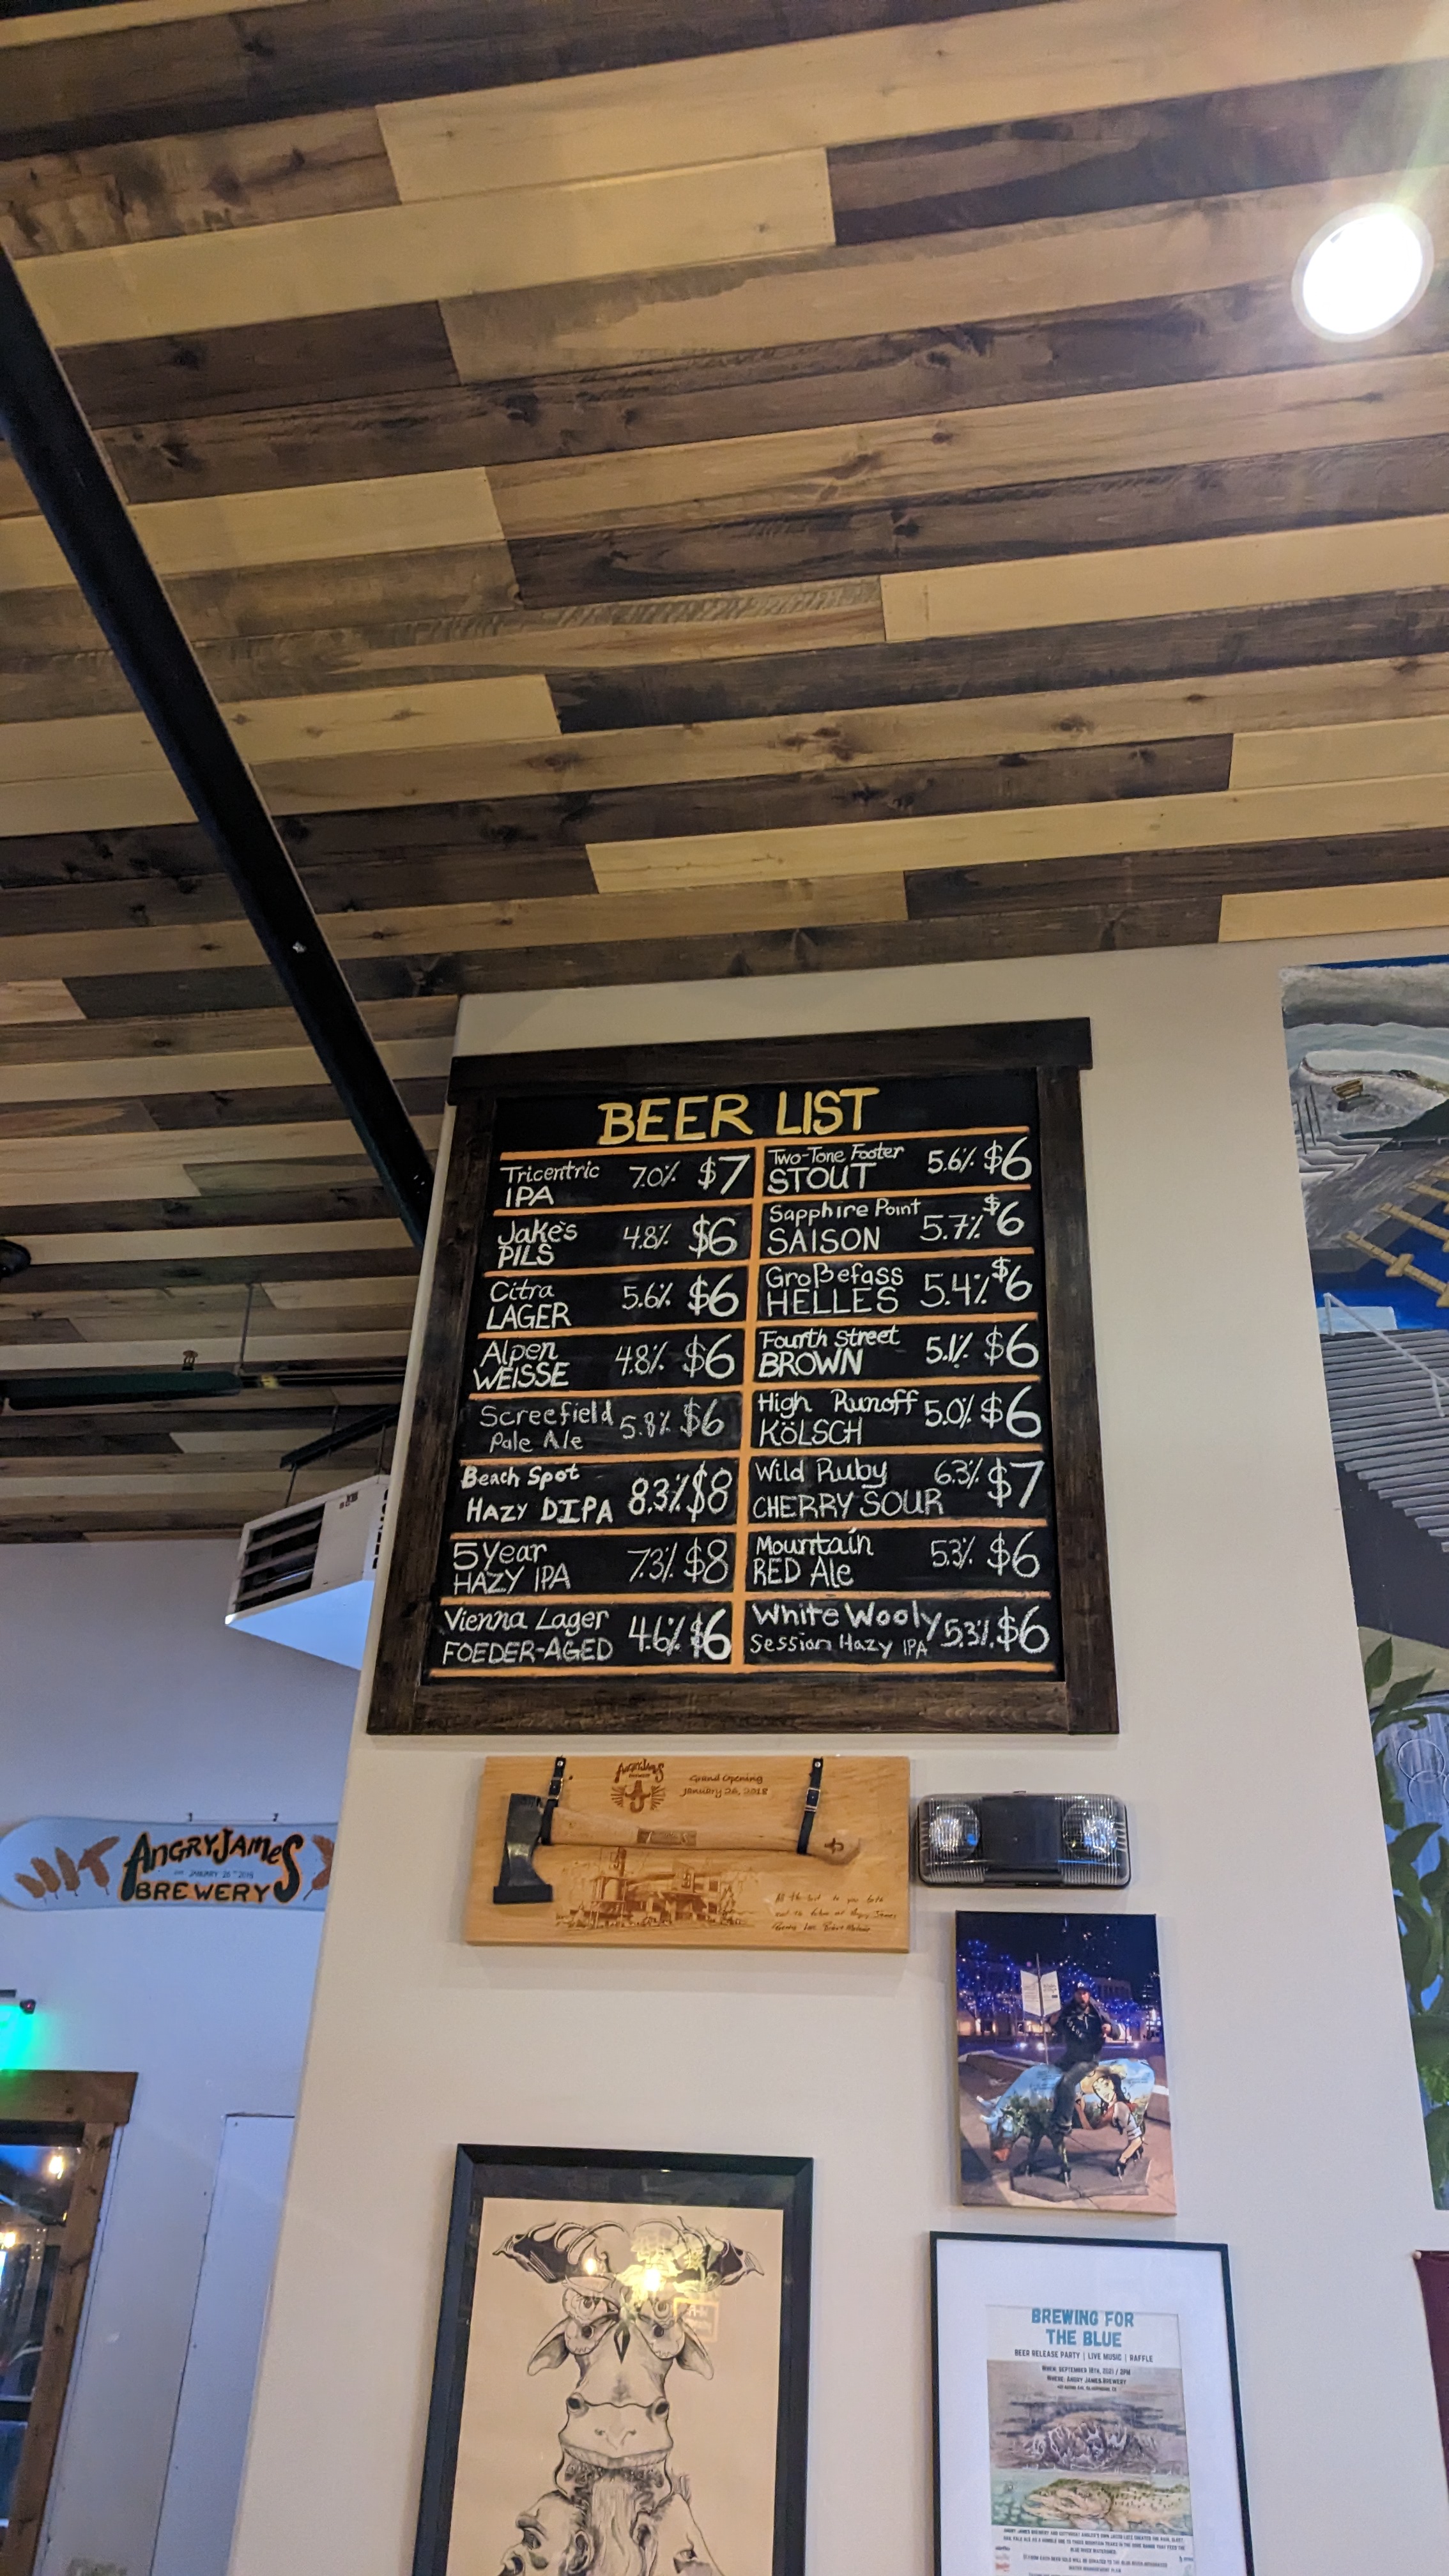 BEER LIST
Tricentric 7.0% $7
IPA
Jake's 4.8% $6
PILS
Citra 5.6% $6
LAGER
Alpen 4.8% $6
WEISSE
Screefield 5.8% $6
Pale Ale
Beach Spot
HAZY DIPA 8.3% $8
5 Year 7.3% $8
HAZY IPA
Vienna Lager 4.6% $6
FOEDER-AGED
Two-Tone Footer 5.6% $6
STOUT
Sapphire Point 5.7% $6
SAISON
Großefass 5.4% $6
HELLES
Fourth Street 5.1% $6
BROWN
High Runoff 5.0% $6
KÖLSCH
Wild Ruby 6.3% $7
CHERRY SOUR
Mountain 5.3% $6
RED Ale
White Wooly 5.3% $6
Session Hazy IPA
AngryJames
Grand Opening
January 26, 2018
ANGRY JAMES
BREWERY
BREWING FOR
THE BLUE
BEER RELEASE PARTY | LIVE MUSIC | RAFFLE
WHEN: SEPTEMBER 18TH, 2021 / 2PM
WHERE: ANGRY JAMES BREWERY